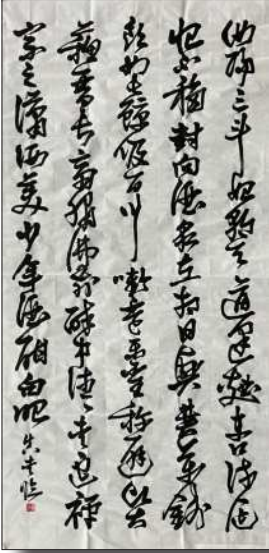 汝陽三斗始朝天道逢麴車口流涎
恨不移封向酒泉左相日興費萬錢
飲如長鯨吸百川啣杯樂聖稱避賢
蘇晉長齋繡佛前醉中往往愛逃禪
宗之瀟洒美少年酒酣白眼